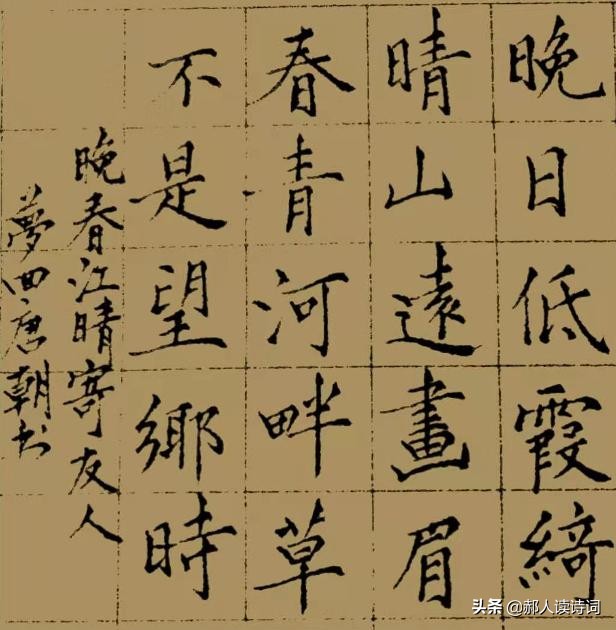 晚日低霞綺
晴山遠畫眉
春青河畔草
不是望鄉時
晚春江晴寄友人
夢回唐朝书
头条 @郝人读诗词